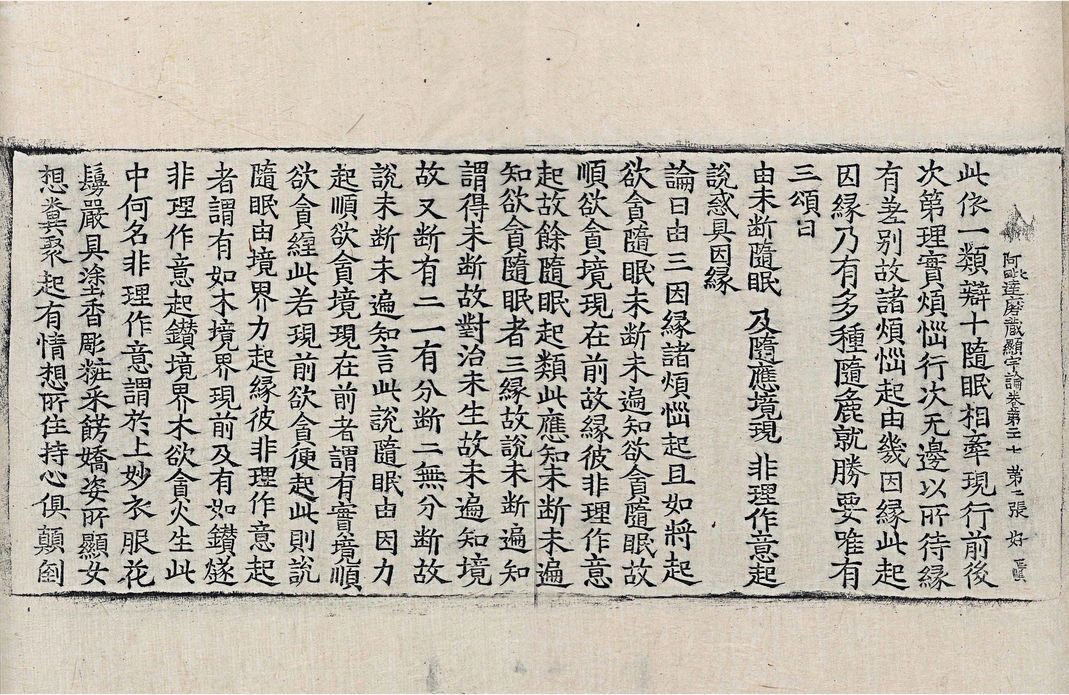 阿毗達磨藏顯宗論卷第二十七 第二張 好
此依一類辯十隨眠相牽現行前後
次第理實煩惱行次无邊以所待緣
有差別故諸煩惱起由幾因緣此起
因緣乃有多種隨麁就勝要唯有
三頌曰
由未斷隨眠 及隨應境現 非理作意起
說惑具因緣
論曰由三因緣諸煩惱起且如將起
欲貪隨眠未斷未遍知欲貪隨眠故
順欲貪境現在前故緣彼非理作意
起故餘隨眠起類此應知未斷未遍
知欲貪隨眠者三緣故說未斷遍知
謂得未斷故對治未生故未遍知境
故又斷有二一有分斷二無分斷故
說未斷未遍知言此說隨眠由因力
起順欲貪境現在前者謂有實境順
欲貪纏此若現前欲貪便起此則說
隨眠由境界力起緣彼非理作意起
者謂有如木境界現前及有如鑽燧
非理作意起鑽境界木欲貪火生此
中何名非理作意謂於上妙衣服花
鬘嚴具塗香彫粧采餝嬌姿所顯女
想糞聚起有情想所住持心俱顛倒